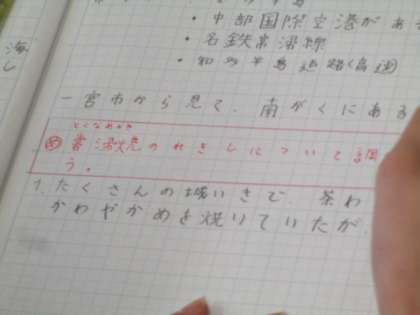 ・中部国際空港があ
・名鉄常滑線
・知多半島道路(高速)
海
し
一宮市から見て、南がくにある
とこなめやき
め 常滑焼のれきしについて調
う。
1. たくさんの地いきで、茶わ
かわやかめを焼いていたが、